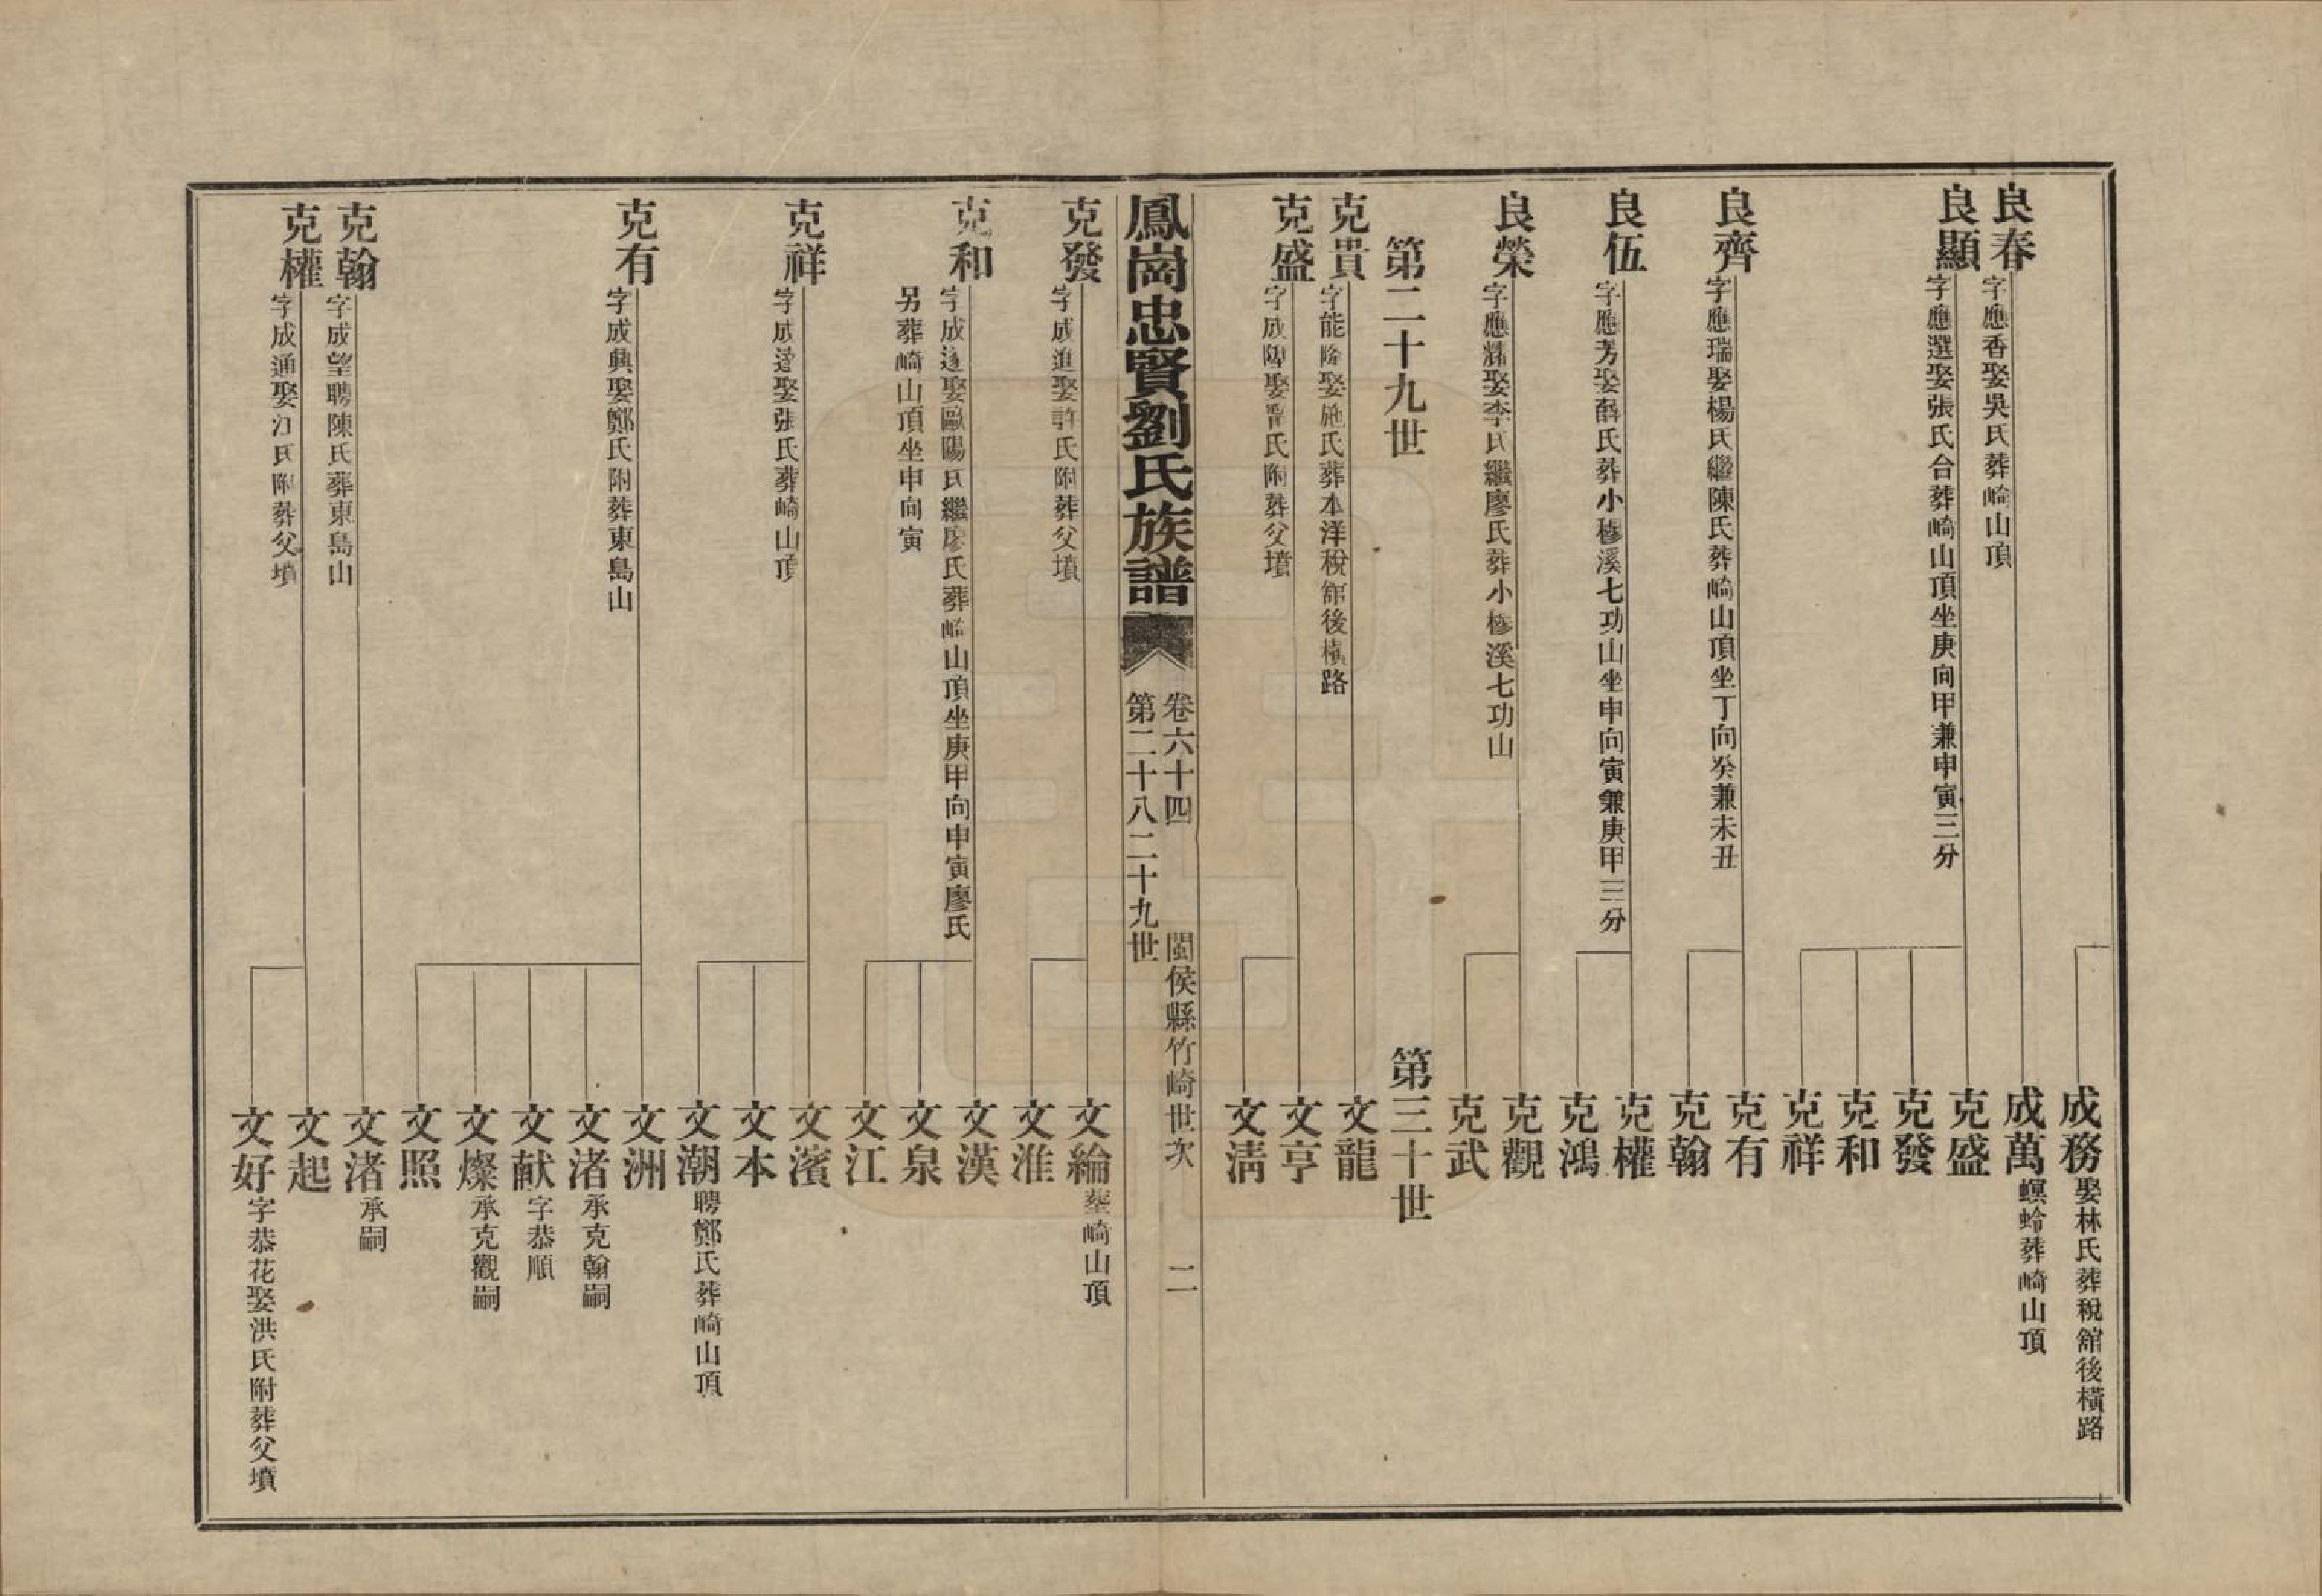 成務 娶林氏葬稅舘後橫路
良春 字應香娶吳氏葬崎山頂
成萬 螟蛉葬崎山頂
良顯 字應選娶張氏合葬崎山頂坐庚向甲兼申寅三分
克盛
克發
克和
克祥
良齊 字應瑞娶楊氏繼陳氏葬崎山頂坐丁向癸兼未丑
克有
克翰
良伍 字應芳娶薛氏葬小穆溪七功山坐申向寅兼庚甲三分
克權
克鴻
良榮 字應 娶李氏繼廖氏葬小穆溪七功山
克觀
克武
第二十九世
第三十世
克貴 字能隆娶施氏葬本洋稅舘後橫路
文龍
克盛 字成 娶 氏附葬父墳
文亨
文清
鳳崗忠賢劉氏族譜
卷六十四 閩侯縣竹崎世次 二
第二十八二十九世
克發 字成進娶許氏附葬父墳
文綸 葬崎山頂
文淮
克和 字成遂娶歐陽氏繼廖氏葬崎山頂坐庚甲向申寅廖氏
另葬崎山頂坐申向寅
文漢
文泉
文江
克祥 字成達娶張氏葬崎山頂
文濱
文本
文潮 聘鄭氏葬崎山頂
克有 字成興娶鄭氏附葬東島山
文洲
文渚 承克翰嗣
文献 字恭順
文燦 承克觀嗣
文照
克翰 字成望聘陳氏葬東島山
文渚 承嗣
克權 字成通娶江氏附葬父墳
文起
文好 字恭花娶洪氏附葬父墳